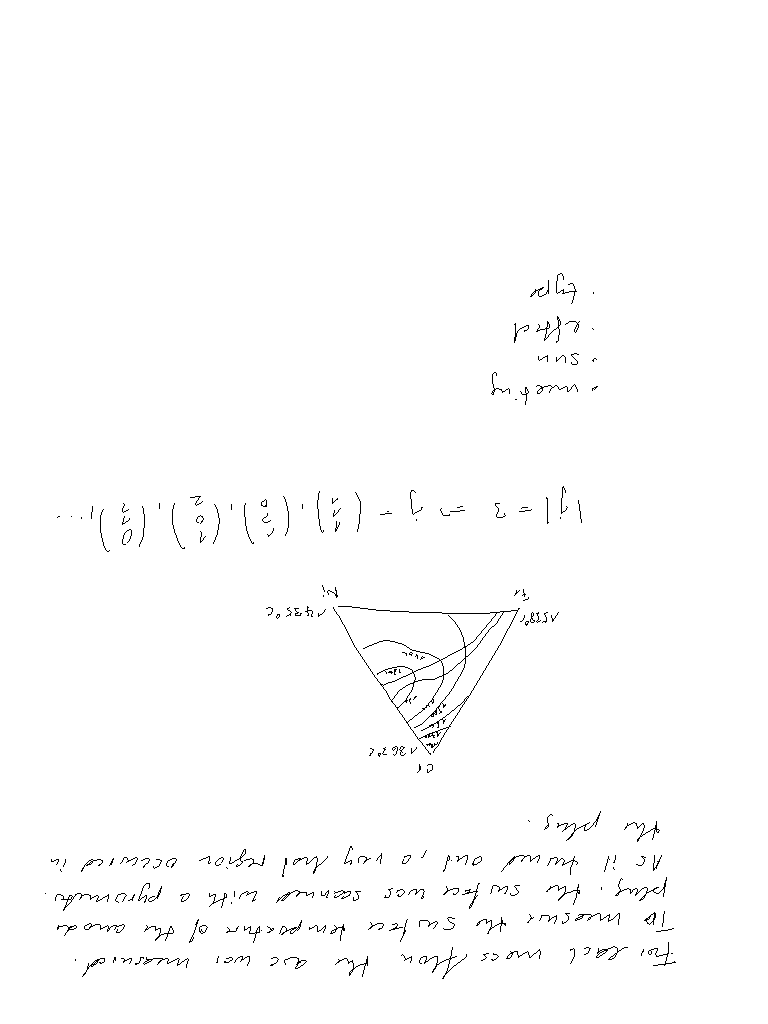 For each mass flow the arc was measured.
To measure the surface temperature of the anode
plug, the surface was scanned with a pyrometer.
As it turned out, a very hot region occurred in
the plug.
Cr
1863°C
1538°C
1435°C
Fe
Ni
|j| = 3 ⇒ j = (1 1 1), (1 2 0), (1 0 2), (0 1 2), ...
• meeting
• sun
• effect
• type